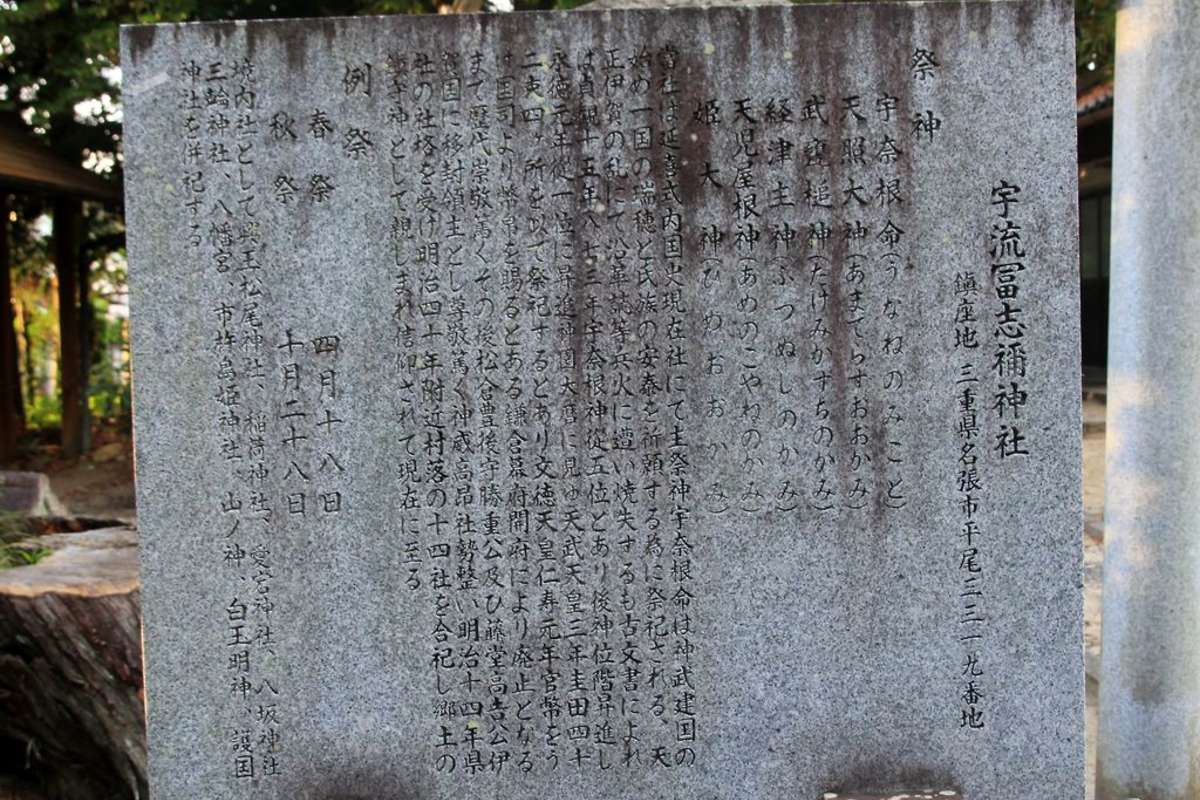 宇流冨志禰神社
鎮座地 三重県名張市平尾三三一九番地
祭神
宇奈根命(うなねのみこと)
天照大神(あまてらすおおかみ)
武甕槌神(たけみかずちのかみ)
経津主神(ふつぬしのかみ)
天児屋根神(あめのこやねのかみ)
姫大神(ひめおおかみ)
当社は延喜式内国史現在社にて主祭神宇奈根命は神武建国の
始め一国の瑞穂と氏族の安泰を祈願する為に祭祀される、天
正伊賀の乱にて沿革誌等兵火に遭い焼失するも古文書によれ
は貞観十五年八七三年宇奈根神従五位とあり後神位階昇進し
永徳元年従一位に昇進神国大暦に見ゆ天武天皇三年圭田四十
二束四ヶ所を以て祭祀するとあり文徳天皇仁寿元年官幣をう
け国司より幣帛を賜るとある鎌倉幕府開府により廃止となる
まで歴代崇敬篤くその後松倉豊後守勝重公及び藤堂高吉公伊
賀国に移封領主とし尊敬篤く神威高昂社勢整い明治十四年県
社の社格を受け明治四十年附近村落の十四社を合祀し郷土の
神として親しまれ信仰されて現在に至る
例祭
春祭 四月十八日
秋祭 十月二十八日
境内社として興玉松尾神社、稲荷神社、愛宕神社、八坂神社
三輪神社、八幡宮、市杵島姫神社、山ノ神、白玉明神、護国
神社を併記する